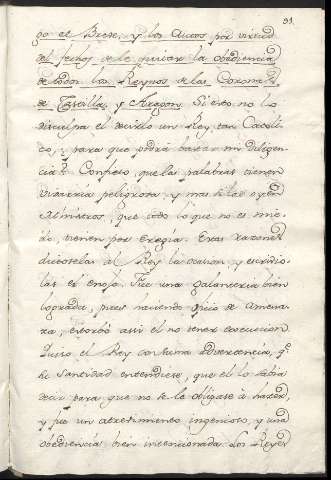 31.
go el Breve, y los Autos por virtud
del fechos de le quitar la obediencia
de todos los Reynos de las Coronas
de Castilla, y Aragon. Si esto no lo
disculpa el decirlo un Rey tan Catoli-
co, para que podrá bastar mi diligen-
cia? Confieso, que las palabras tienen
vizarria peligrosa, y mas si las oyen
Ministros, que todo lo que no es mie-
do, tienen por eregía. Estas razones
dictóselas al Rey la ocasion, y escrivio-
las el enojo. Fue una galanteria bien
lograda, pues haciendo oficio de amena-
za, estorbó assi el no tener execucion
Quiso el Rey con suma advertencia, q.
su Santidad entendiese, que el lo sabia
decir para que no se le obligase a hacer,
y fue un atrevimiento ingenioso, y una
obediencia bien intencionada. Los Reyes